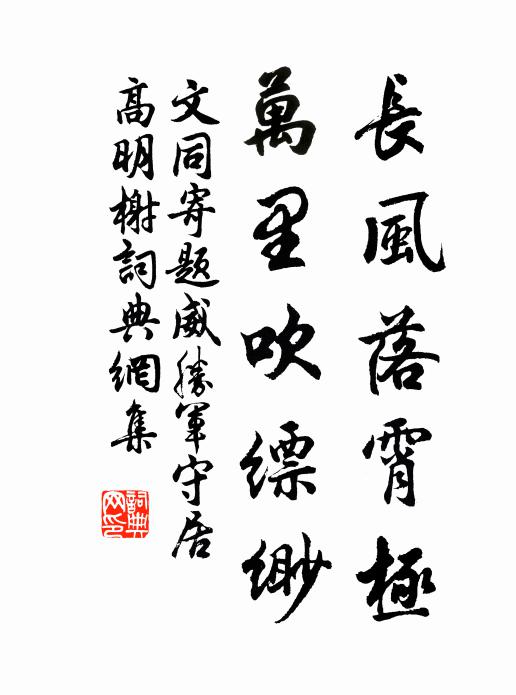 長風落霄極
萬里吹縹緲
文同寄題威勝軍守居
高明榭詞典網集
詞典網印